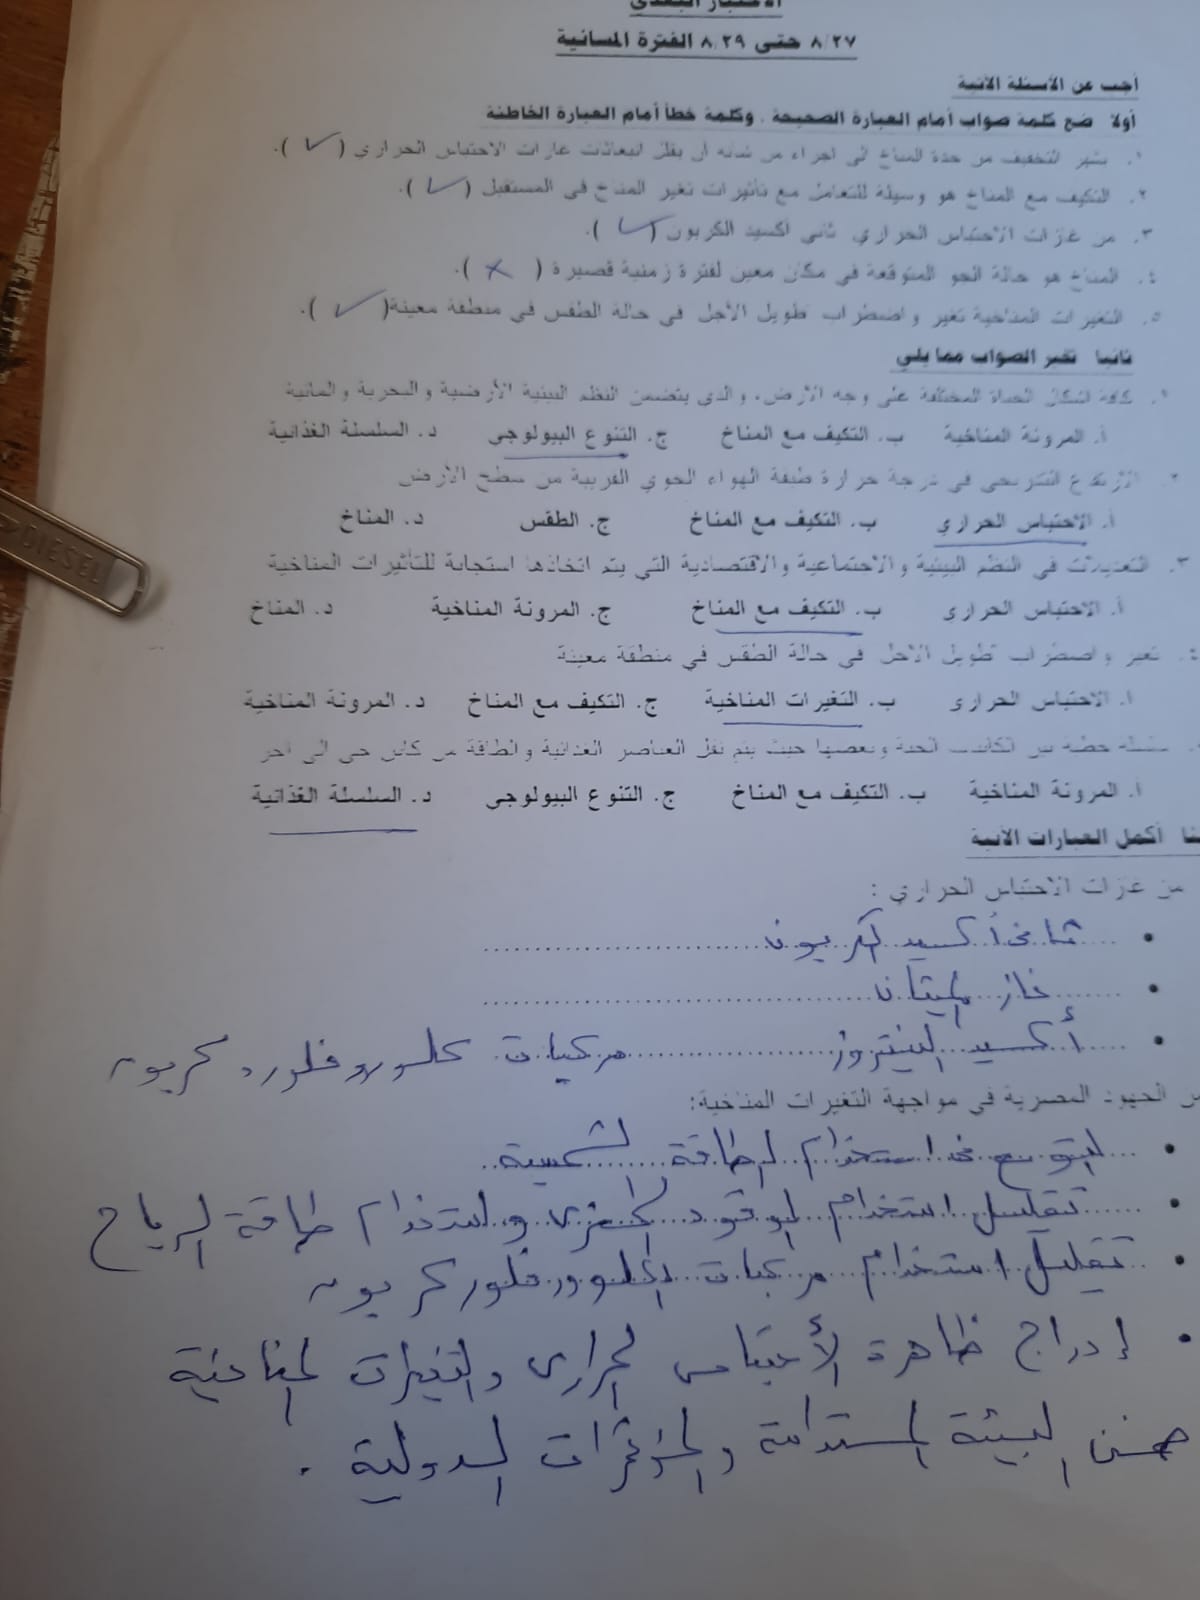 الاختبار البعدي
٨/٢٧ حتى ٨/٢٩ الفترة المسائية
أجب عن الأسئلة الآتية
أولا ضع كلمة صواب أمام العبارة الصحيحة ، وكلمة خطأ أمام العبارة الخاطئة
١. يشير التخفيف من حدة المناخ الى اجراء من شأنه أن يقلل انبعاثات غازات الاحتباس الحراري ( ✓ ).
٢. التكيف مع المناخ هو وسيلة للتعامل مع تأثيرات تغير المناخ في المستقبل ( ✓ ).
٣. من غازات الاحتباس الحراري ثاني أكسيد الكربون ( ✓ ).
٤. المناخ هو حالة الجو المتوقعة في مكان معين لفترة زمنية قصيرة ( × ).
٥. التغيرات المناخية تغير واضطراب طويل الأجل في حالة الطقس في منطقة معينة( ✓ ).
ثانيا تخير الصواب مما يلي
١. كافة اشكال الحياة المختلفة على وجه الارض، والذي يتضمن النظم البيئية الأرضية والبحرية والمائية
أ. المرونة المناخية ب. التكيف مع المناخ ج. التنوع البيولوجي د. السلسلة الغذائية
٢. الارتفاع التدريجي في درجة حرارة طبقة الهواء الجوي القريبة من سطح الأرض
أ. الاحتباس الحراري ب. التكيف مع المناخ ج. الطقس د. المناخ
٣. التعديلات في النظم البيئية والاجتماعية والاقتصادية التي يتم اتخاذها استجابة للتأثيرات المناخية
أ. الاحتباس الحراري ب. التكيف مع المناخ ج. المرونة المناخية د. المناخ
٤. تغير واضطراب طويل الاجل في حالة الطقس في منطقة معينة
ا. الاحتباس الحراري ب. التغيرات المناخية ج. التكيف مع المناخ د. المرونة المناخية
سلسلة خطية بين الكائنات الحية وبعضها حيث يتم نقل العناصر الغذائية والطاقة من كائن حي الى آخر
ا. المرونة المناخية ب. التكيف مع المناخ ج. التنوع البيولوجي د. السلسلة الغذائية
أكمل العبارات الآتية
من غازات الاحتباس الحراري :
• ثاني أكسيد الكربون
• غاز الميثان
• أكسيد النيتروز مركبات كلوروفلورد كربون
من الجهود المصرية في مواجهة التغيرات المناخية:
• التوسع في استخدام الطاقة الشمسية
• تقليل استخدام الوقود الحفرى واستخدام طاقة الرياح
• تقليل استخدام مركبات الكلوروفلوركربون
• إدراج ظاهرة الأحتباس الحرارى والتغيرات المناخية
ضمن البيئة المستدامة والمؤتمرات الدولية .
DIESEL